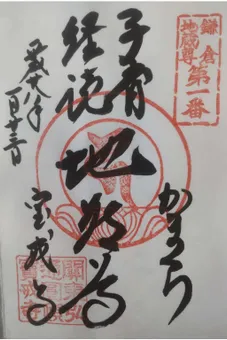 鎌倉
地蔵尊
第一番
子育
経読
地蔵尊
かまくら
平成廿八年
宝戒寺